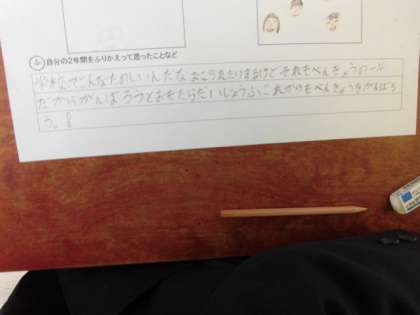 自分の2年間をふりかえって思ったことなど
学校てこんなたのしいんだなおこられたりするけどそれもべんきょうの一つ
だからがんばろうっとおもたらだいじょうぶこれからもべんきょうをがんばろ
う。